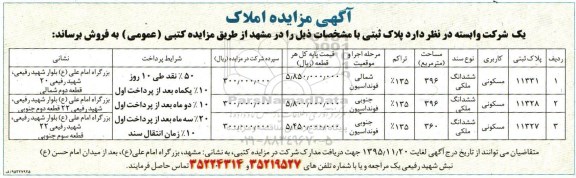 آگهی مزایده املاک
یک شرکت وابسته در نظر دارد پلاک ثبتی با مشخصات ذیل را در مشهد از طریق مزایده کتبی (عمومی) به فروش برساند:
ردیف پلاک ثبتی کاربری نوع سند مساحت (مترمربع) تراکم مرحله اجرا و موقعیت قیمت پایه کل هر قطعه (ریال) سپرده شرکت در مزایده (ریال) شرایط پرداخت نشانی
۱ ۱۱۳۳۱ مسکونی ششدانگ ملکی ۳۹۶ ۱۳۵٪ شمالی فونداسیون ۵/۸۵۰/۰۰۰/۰۰۰ ۳۰۰/۰۰۰/۰۰۰ ۵۰٪ نقد طی ۱۰ روز بزرگراه امام علی (ع) بلوار شهید رفیعی، شهید رفیعی ۲۰ قطعه دوم شمالی
۱۰٪ یکماه بعد از پرداخت اول
۲ ۱۱۳۲۸ مسکونی ششدانگ ملکی ۳۹۶ ۱۳۵٪ جنوبی فونداسیون ۳۰۰/۰۰۰/۰۰۰ ۱۰٪ دو ماه بعد از پرداخت اول بزرگراه امام علی (ع) بلوار شهید رفیعی، شهید رفیعی ۲۲ قطعه دوم جنوبی
۳ ۱۱۳۲۷ مسکونی ششدانگ ملکی ۳۶۰ ۱۳۵٪ جنوبی فونداسیون ۵/۴۵۰/۰۰۰/۰۰۰ ۳۰۰/۰۰۰/۰۰۰ ۲۰٪ سه ماه بعد از پرداخت اول بزرگراه امام علی (ع) بلوار شهید رفیعی، شهید رفیعی ۲۲ قطعه سوم جنوبی
۱۰٪ زمان انتقال سند
متقاضیان می توانند از تاریخ درج آگهی لغایت ۱۳۹۵/۱۱/۲۰ جهت دریافت مدارک شرکت در مزایده کتبی، به نشانی: مشهد، بزرگراه امام علی (ع)، بعد از میدان امام حسن (ع)
نبش شهید رفیعی یک مراجعه و یا با شماره تلفن های ۳۵۲۱۹۵۲۷ و ۳۵۲۲۴۳۱۴ تماس حاصل فرمایند.